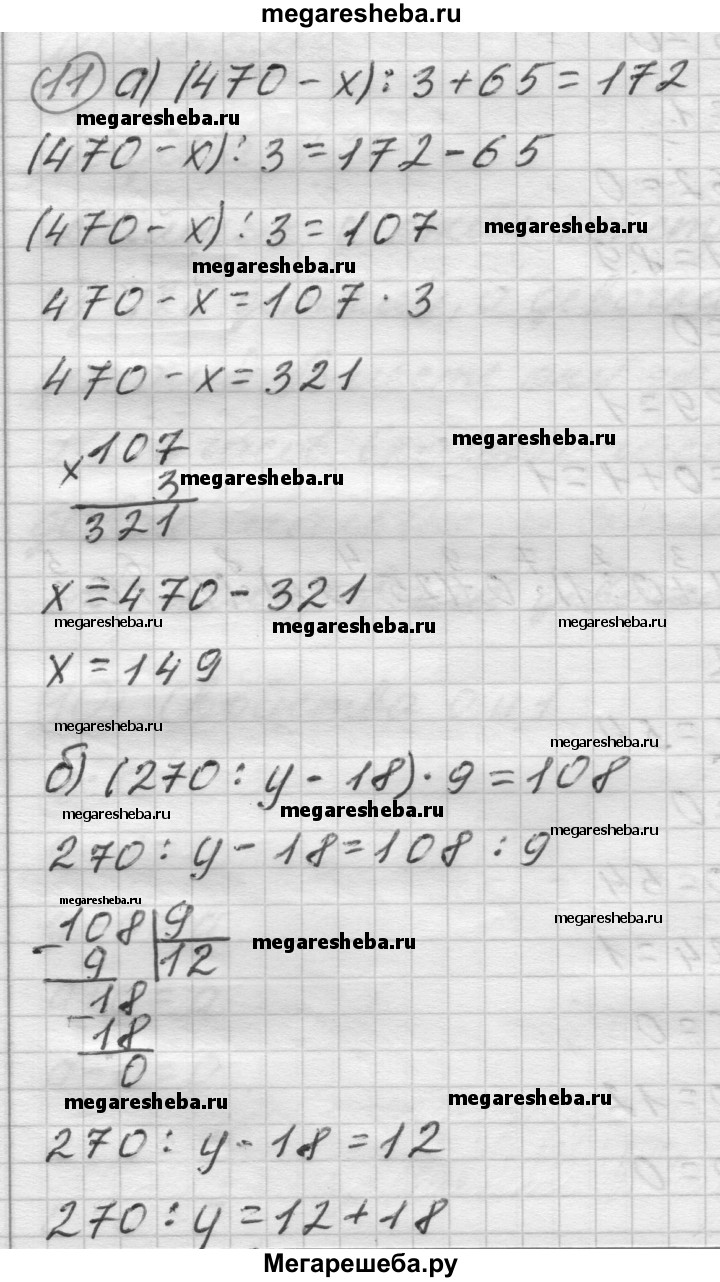 megaresheba.ru
11 а) (470 - x) : 3 + 65 = 172
megaresheba.ru
(470 - x) : 3 = 172 - 65
(470 - x) : 3 = 107 megaresheba.ru
megaresheba.ru
470 - x = 107 · 3
470 - x = 321
megaresheba.ru
× 107
3 megaresheba.ru
321
x = 470 - 321
megaresheba.ru megaresheba.ru megaresheba.ru
x = 149
megaresheba.ru megaresheba.ru
б) (270 : y - 18) · 9 = 108
megaresheba.ru megaresheba.ru megaresheba.ru
270 : y - 18 = 108 : 9
megaresheba.ru megaresheba.ru
- 108 | 9
9 | 12 megaresheba.ru
18
- 18
0
megaresheba.ru megaresheba.ru
270 : y - 18 = 12
270 : y = 12 + 18
Мегарешеба.ру